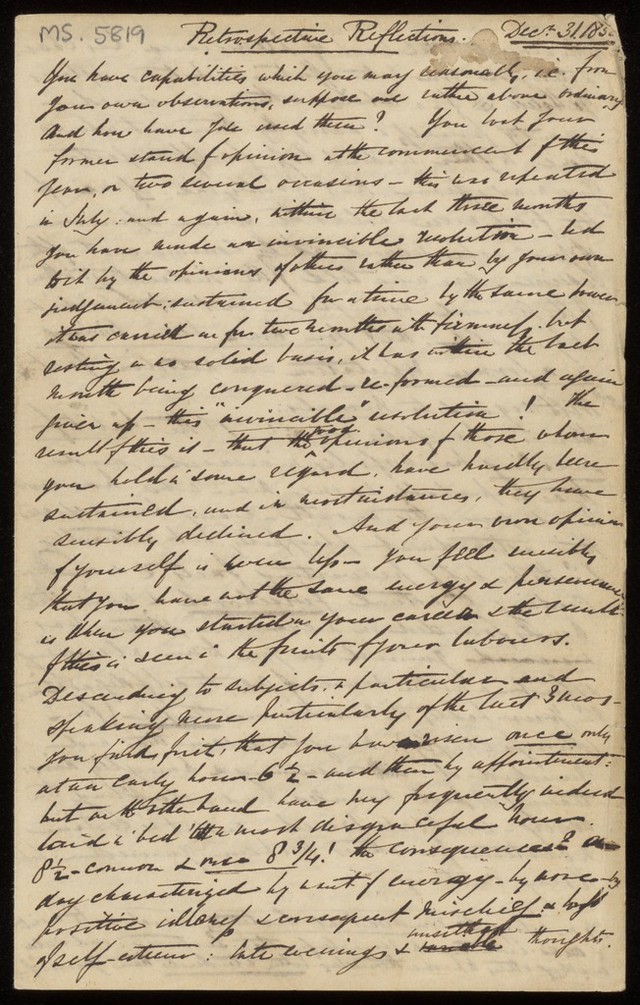 MS. 5819
Retrospective Reflections. Decr. 31. 183
You have capabilities which you may reasonably, i.e. from
your own observations, suppose are rather above ordinary
And how have you used them? You lost your
former stand of opinion at the commencemt of this
year, on two several occasions – this was repeated
in July: and again, within the last three months
you have made an invincible resolution – led
to it by the opinions of others rather than by your own
judgement; sustained for a time by the same power
it was carried on for two months with firmness, but
resting on no solid basis, it has within the last
month being conquered – re-formed – and again
given up – this "invincible" resolution! The
result of this is – that the opinions of those whom
you held in some regard, have hardly been
sustained, and in most instances, they have
sensibly declined. And your own opinion
of yourself is even less – you feel sensibly
that you have not the same energy & perseverance
as when you started in your career & the result
of this is seen in the fruits of your labours.
Descending to subjects in particular and
speaking more particularly of the last 3 mos –
you find, first, that you have risen once only
at an early hour – 6½ – and then by appointment:
but on the other hand have very frequently indeed
laid in bed 'till a most disgraceful hour
8½ – common & once 8¾! the consequences?
day characterized by want of energy – by
positive idleness & consequent mischief & loss
of self-esteem: late evenings & thoughts.